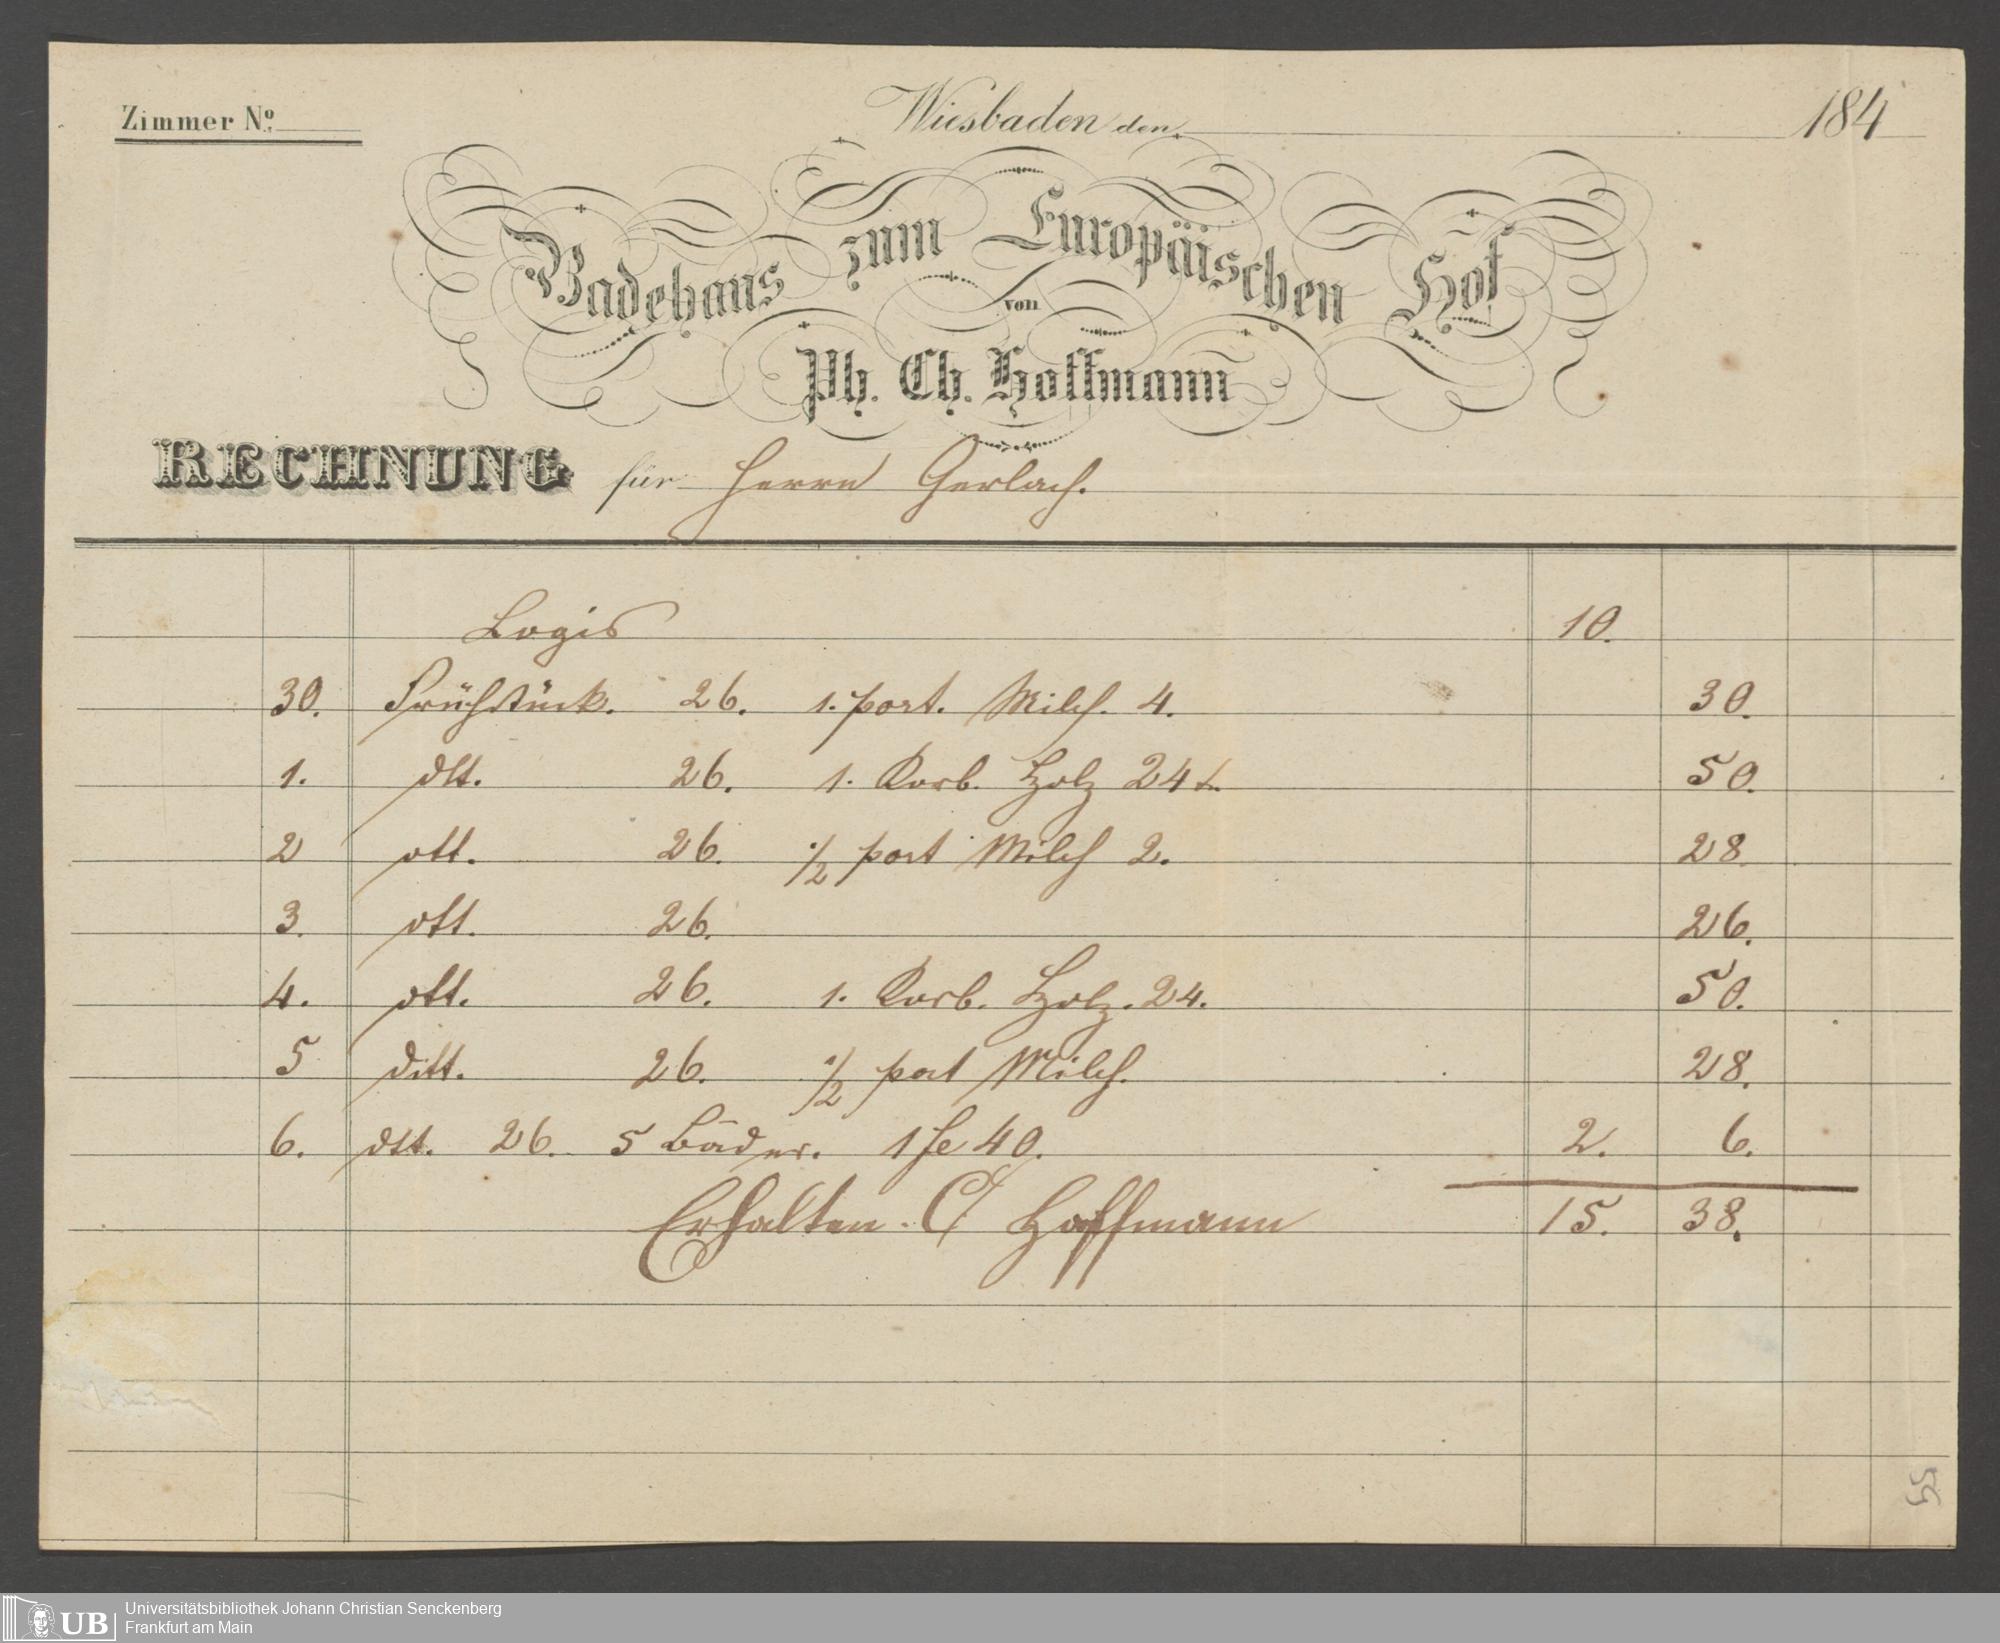 Zimmer No.
Wiesbaden den 184
Badehaus zum Europäischen Hof
von
Ph. Ch. Hoffmann
RECHNUNG für Herrn Gerlach.
Logis 10.
30. Frühstück. 26. 1. port. Milch. 4. 30.
1. dtt. 26. 1. Korb. Holz 24 50.
2 dtt. 26. 1/2 port Milch 2. 28
3. dtt. 26. 26.
4. dtt. 26. 1. Korb. Holz. 24. 50.
5 ditt. 26. 1/2 port Milch. 28.
6. dtt. 26. 5 Bäder. 1 fe 40. 2. 6.
Erhalten. C Hoffmann 15. 38.
55
UB
Universitätsbibliothek Johann Christian Senckenberg
Frankfurt am Main